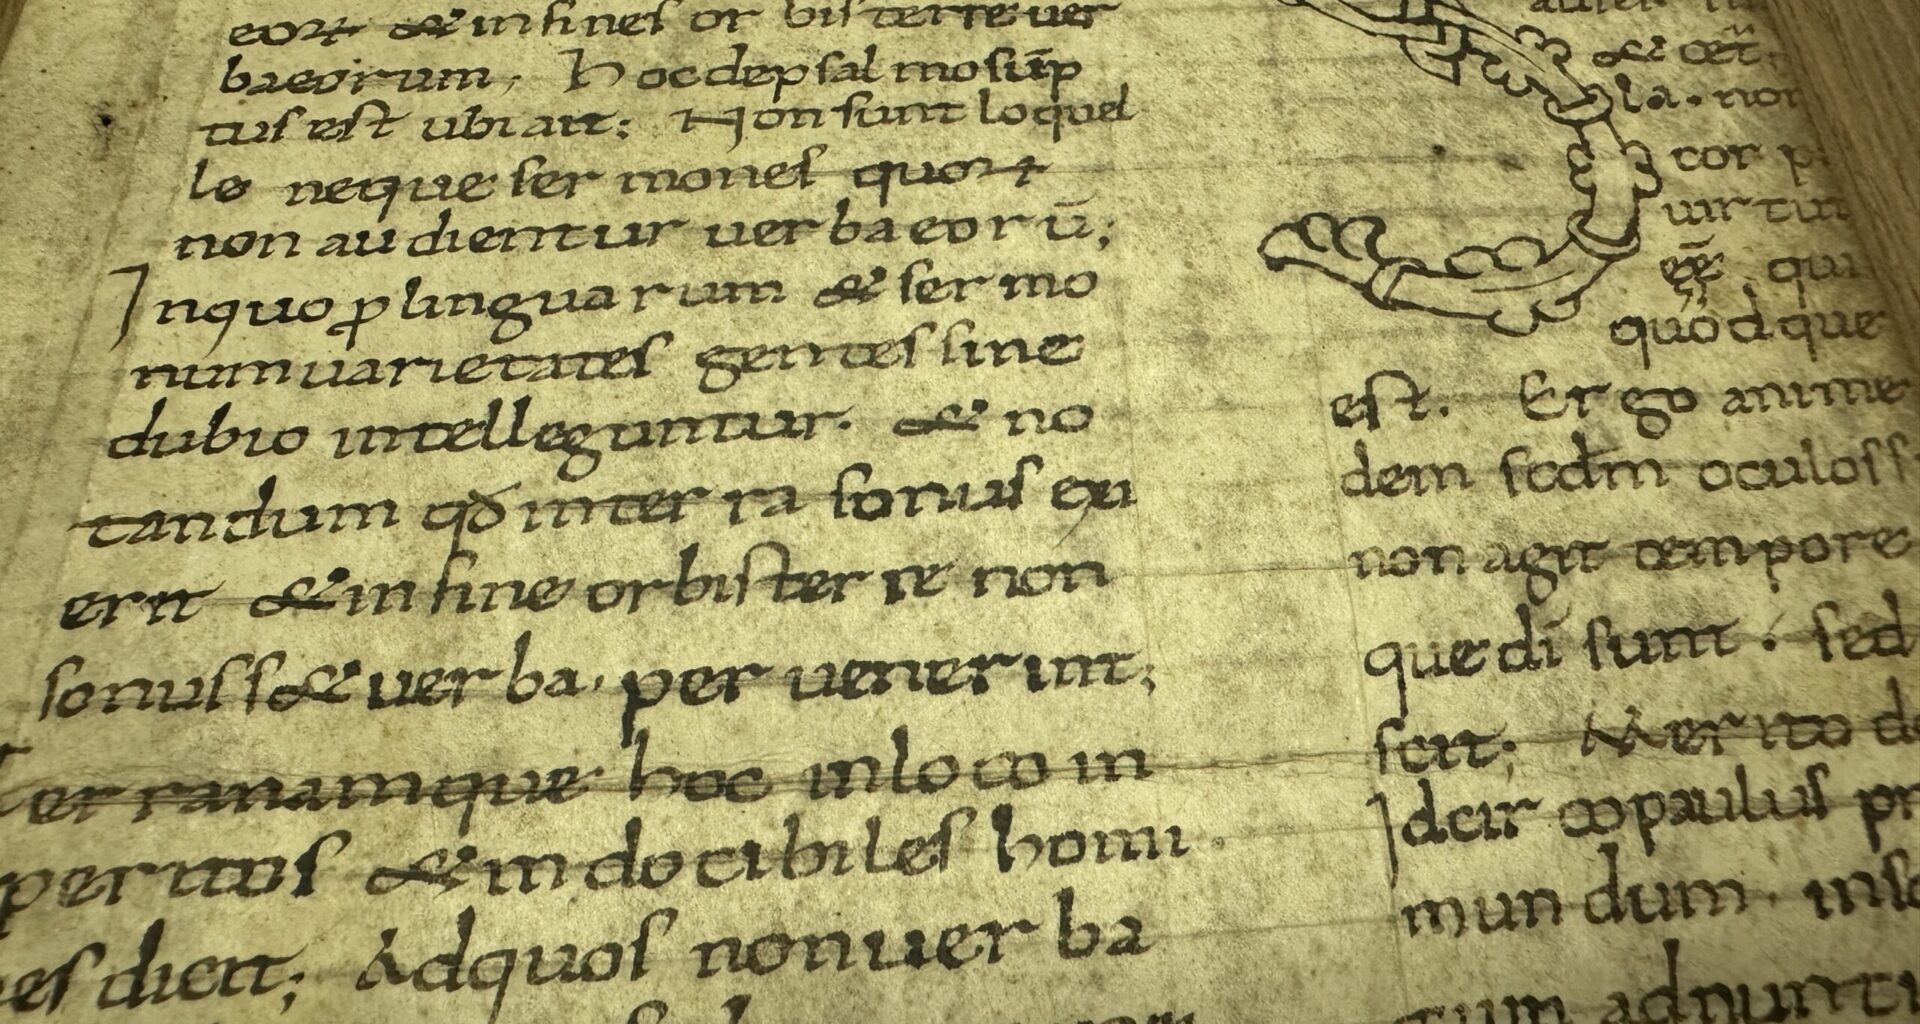 eoꝝ & in fines orbis terre uer
baeorum, Hoc de psalmo sūp
tus est ubi ait; Non sunt loquel
le neque sermones quoꝝ
non audientur uerba eorū;
In quo ꝓ linguarum & sermo
num uarietates gentes sine
dubio intelleguntur. & no
tandum qđ in terra sonus exi
erit & in fine orbis terre non
sonus s& uerba. peruenerint;
Terranamque hoc in loco in
peritos & indocibiles homi
nes dicit; Ad quos non uerba
& cet
la. non
cor
uirtut
ēē qui
quod que
est. Ergo anime
dem scdm oculos
non agit tempore
que di sunt. sed
scit; Merito
Idcirco paulus
mundum. in
tum adnunti